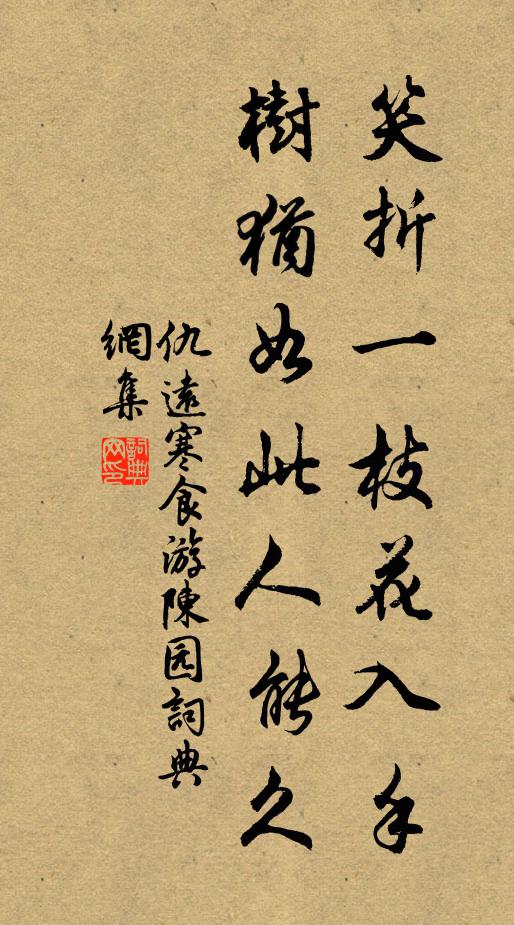 笑折一枝花入手
樹猶如此人能久
仇遠寒食游陳园詞典
網集
詞典網印